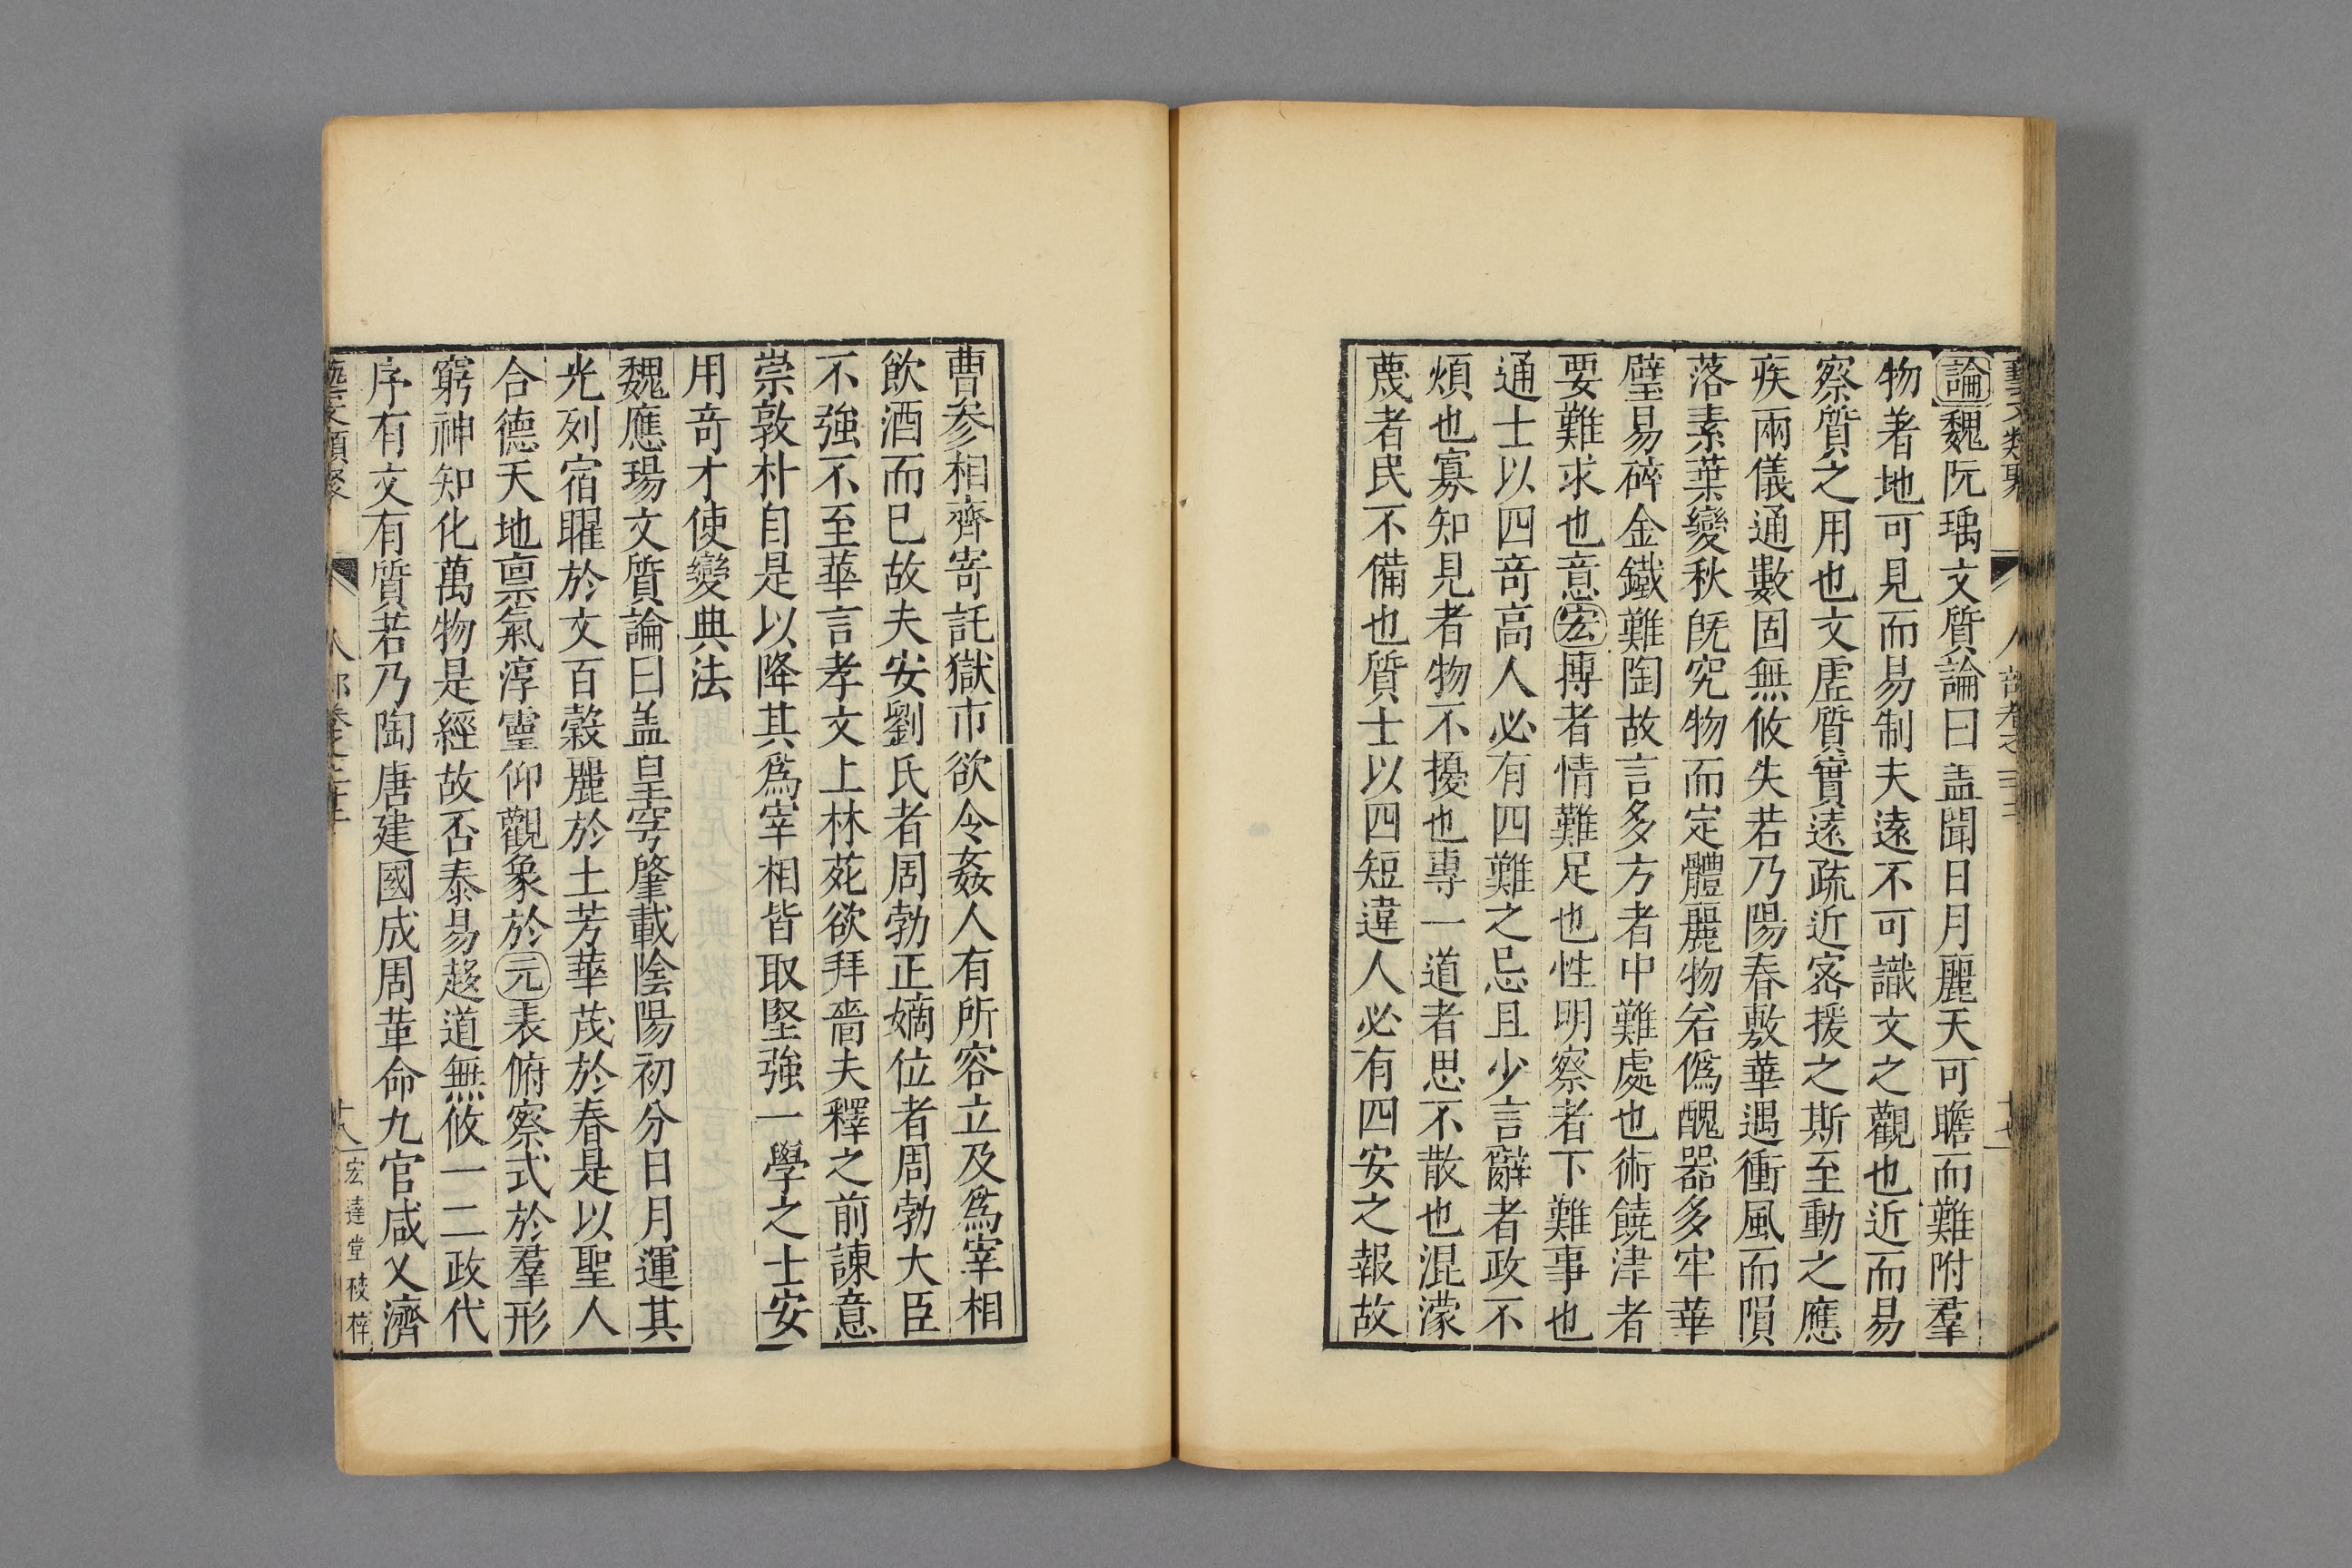 論魏阮瑀文質論曰盖聞日月麗天可瞻而難附羣
物著地可見而易制夫遠不可識文之觀也近而易
察質之用也文虛質實遠疏近宻援之斯至動之應
疾兩儀通數固無攸失若乃陽春敷華遇衝風而隕
落素葉變秋旣究物而定體麗物若僞醜器多牢華
璧易碎金鐵難陶故言多方者中難處也術饒津者
要難求也意宏博者情難足也性明察者下難事也
通士以四竒高人必有四難之忌且少言辭者政不
煩也寡知見者物不擾也專一道者思不散也混濛
蔑者民不備也質士以四短違人必有四安之報故
曹參相齊寄託獄市欲令姦人有所容立及爲宰相
飲酒而已故夫安劉氏者周勃正嫡位者周勃大臣
不強不至華言孝文上林苑欲拜嗇夫釋之前諫意
崇敦朴自是以降其爲宰相皆取堅強一學之士安
用竒才使變典法
魏應瑒文質論曰盖皇穹肇載陰陽初分日月運其
光列宿曜於文百穀麗於土芳華茂於春是以聖人
合德天地禀氣淳靈仰觀象於元表俯察式於羣形
窮神知化萬物是經故否泰易趍道無攸一二政代
序有文有質若乃陶唐建國成周革命九官咸乂濟
宏達堂校梓